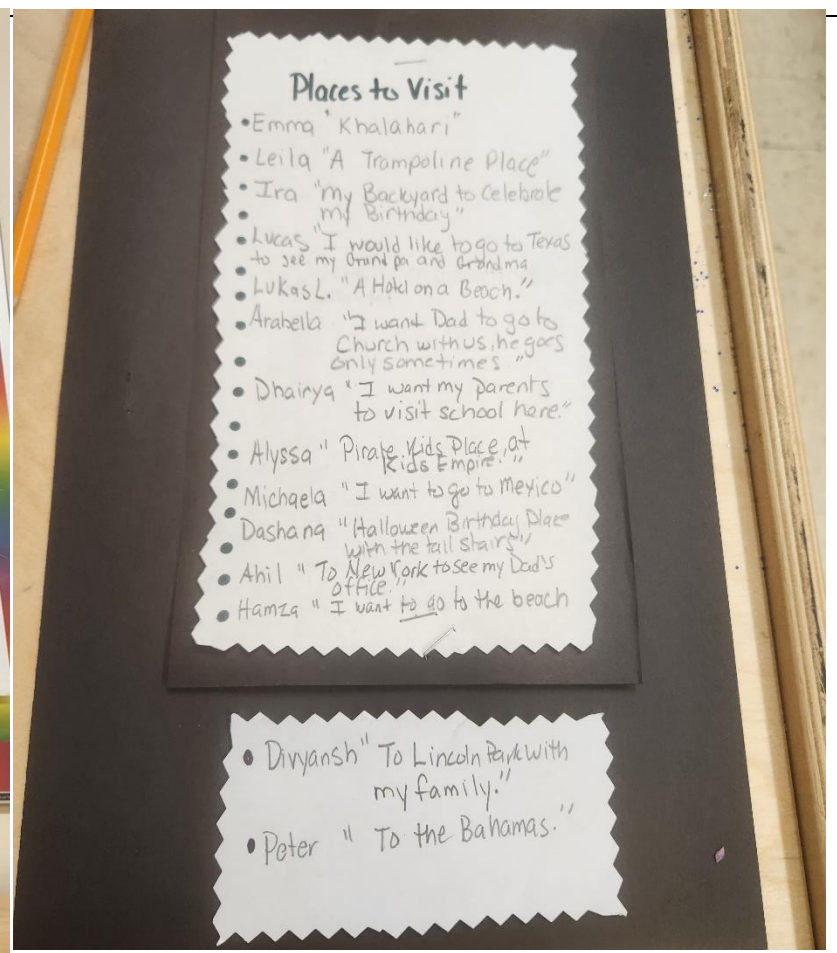 Places to Visit
• Emma "Khalahari"
• Leila "A Trampoline Place"
• Ira "my Backyard to Celebrate
• my Birthday"
• Lucas "I would like to go to Texas
to see my Grandpa and Grandma
• Lukas L. "A Hotel on a Beach."
• Arabella "I want Dad to go to
Church with us, he goes
• only sometimes"
• Dhairya "I want my parents
to visit school here."
• Alyssa "Pirate Kids Place, at
Kids Empire."
• Michaela "I want to go to Mexico"
• Dashana "Halloween Birthday Place
• with the tall stairs"
• Ahil "To New York to see my Dad's
office."
• Hamza "I want to go to the beach
• Divyansh "To Lincoln Park with
my family."
• Peter " To the Bahamas."